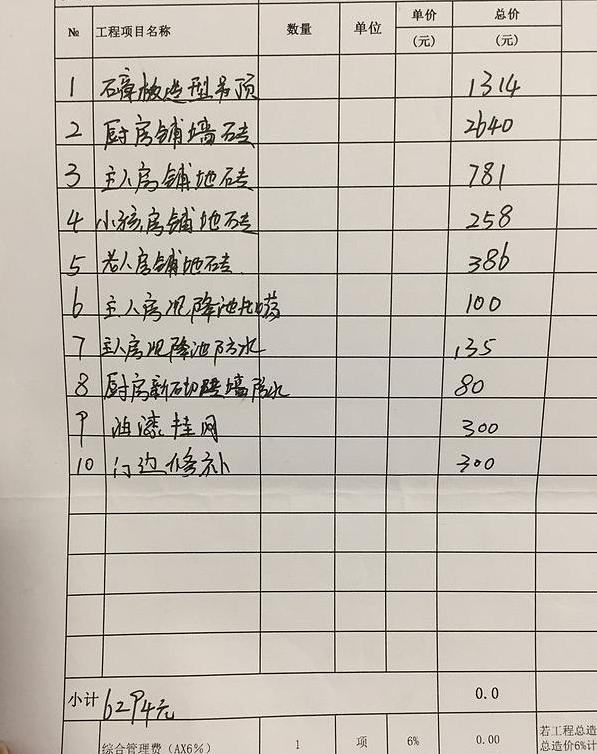 № 工程项目名称 数量 单位 单价 (元) 总价 (元)
1 石膏板造型吊顶 1314
2 厨房铺墙砖 2640
3 主人房铺地砖 781
4 小孩房铺地砖 258
5 老人房铺地砖 386
6 主人房沉降池 100
7 主人房沉降池防水 135
8 厨房新砌砖墙防水 80
9 油漆挂网 300
10 门边修补 300
小计 6294元 0.0
综合管理费(AX6%) 1 项 6% 0.00 若工程总造
总造价6%计